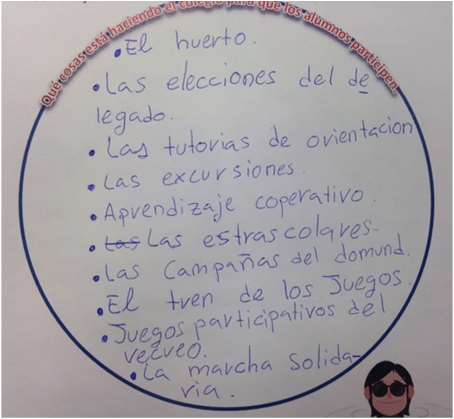 Qué cosas está haciendo el colegio para que los alumnos participen
• El huerto.
• Las elecciones del de
legado.
• Las tutorias de orientacion
• Las excursiones.
• Aprendizaje coperativo.
• Las Las estrascolares.
• Las Campañas del domund.
• El tren de los Juegos.
• Juegos participativos del
recreo.
• La marcha Solida-
ria.